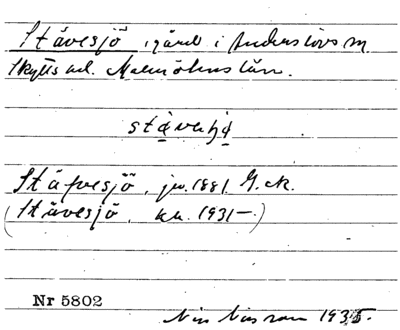 Stävesjö, gård i Anderslövs sn
Skytts hd. Malmöhus län.
stävəɧö
Stäfvesjö, jv. 1881. G.ek.
(Stävesjö, kk. 1931–)
Nr 5802
Nils Nilsson 1935.